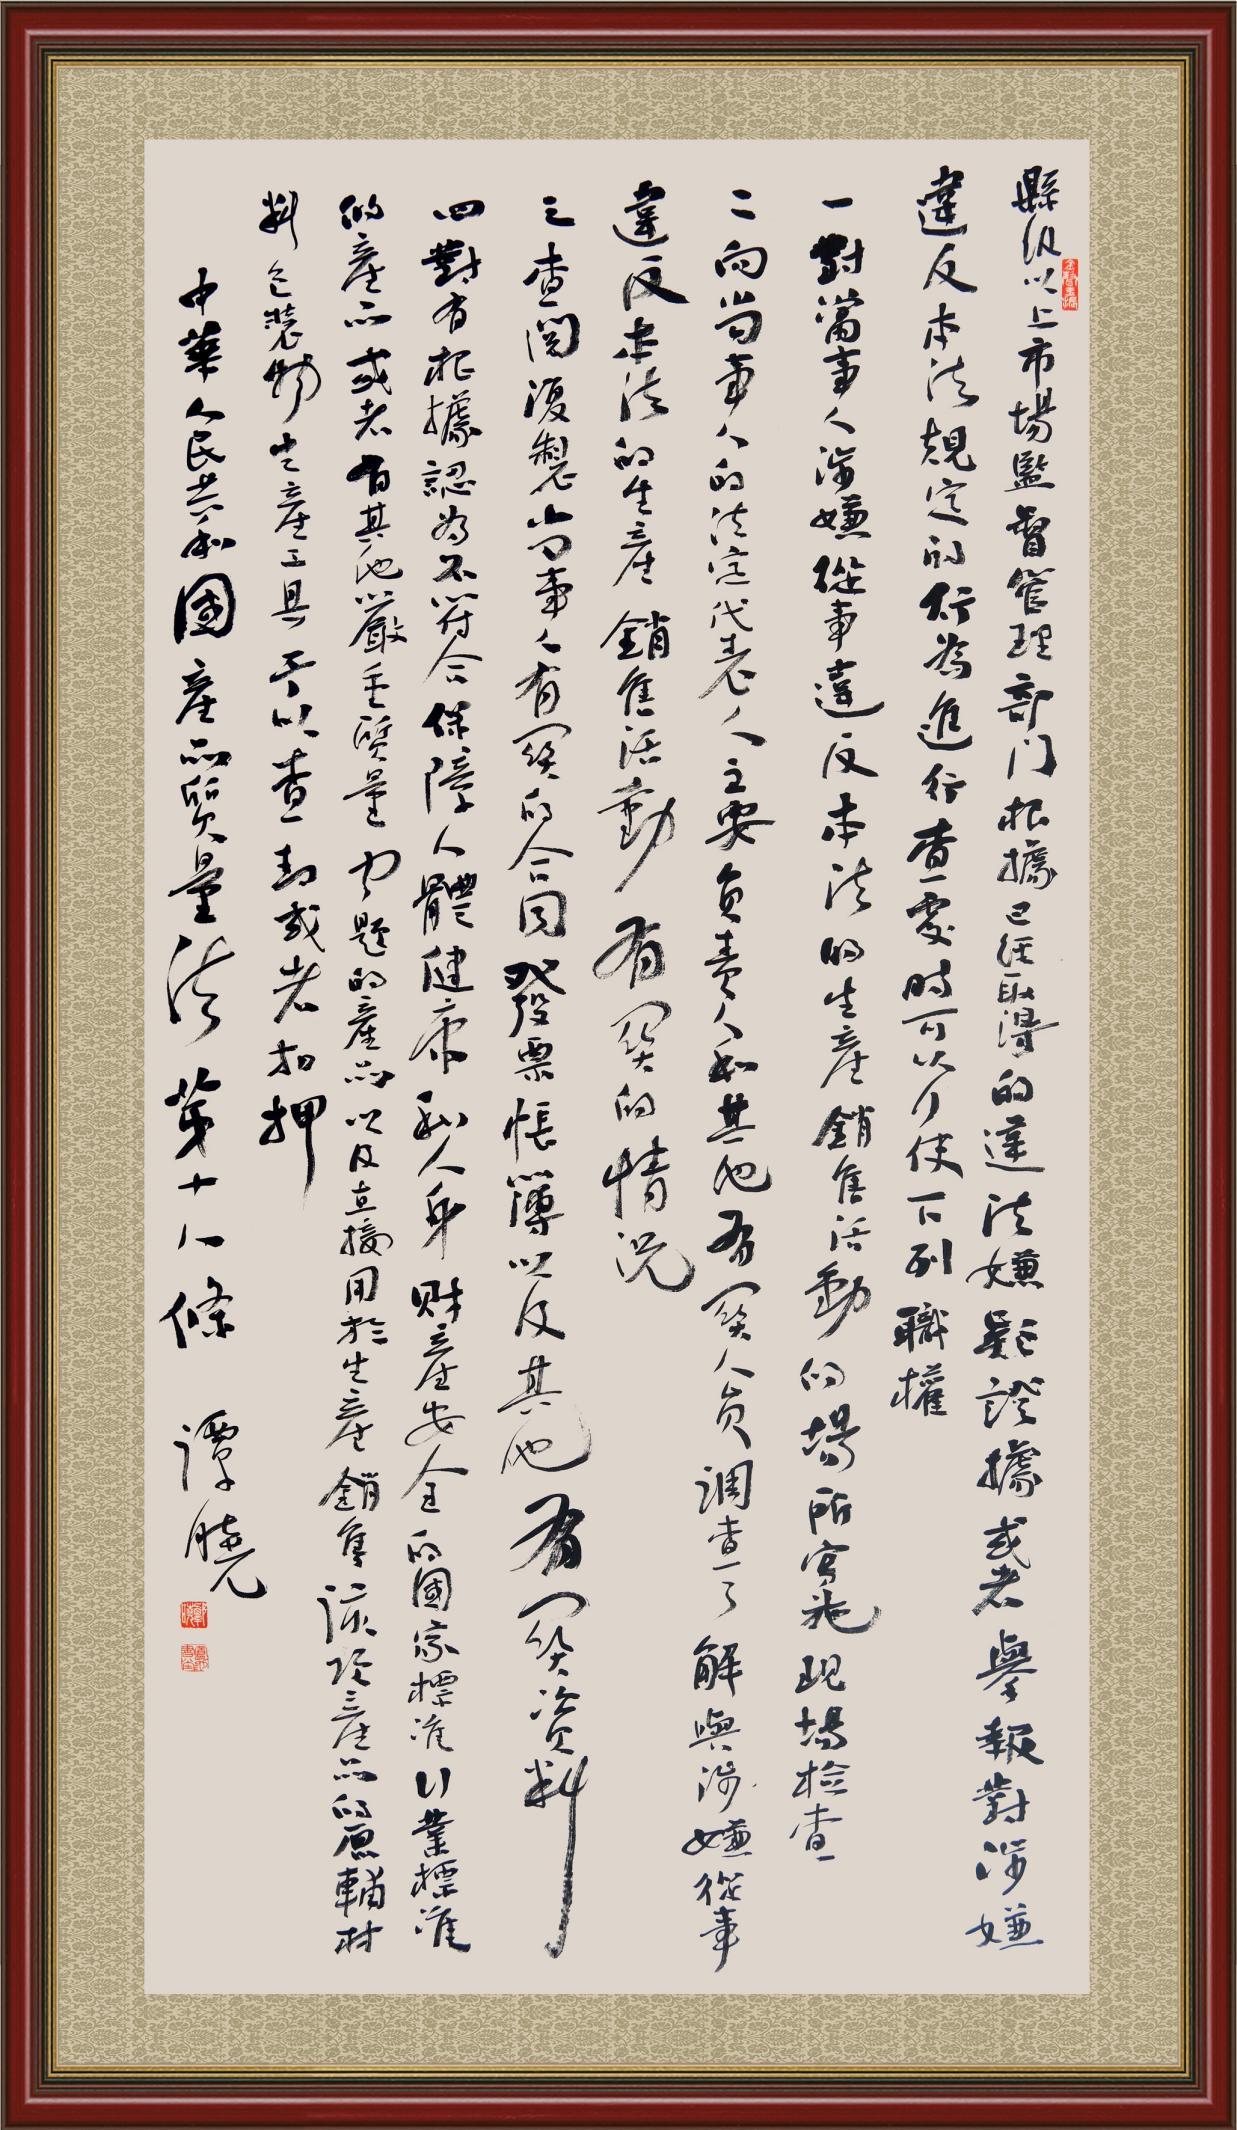 縣級以上市場監督管理部门根據已經取得的違法嫌疑證據或者舉報對涉嫌
違反本法規定的行為進行查處時可以行使下列職權
一對當事人涉嫌從事違反本法的生産銷售活動的場所實施現場檢查
二向當事人的法定代表人主要負責人和其他有関人員調查了解與涉嫌從事
違反本法的生産銷售活動有関的情況
三查閱復製當事人有関的合同發票帳簿以及其他有関資料
四對有根據認為不符合保障人體健康和人身財産安全的國家標准行業標准
的産品或者有其他嚴重質量问題的産品以及直接用於生産銷售該項産品的原輔材
料包裝物生産工具予以查封或者扣押
中華人民共和國産品質量法第十八條 譚曉